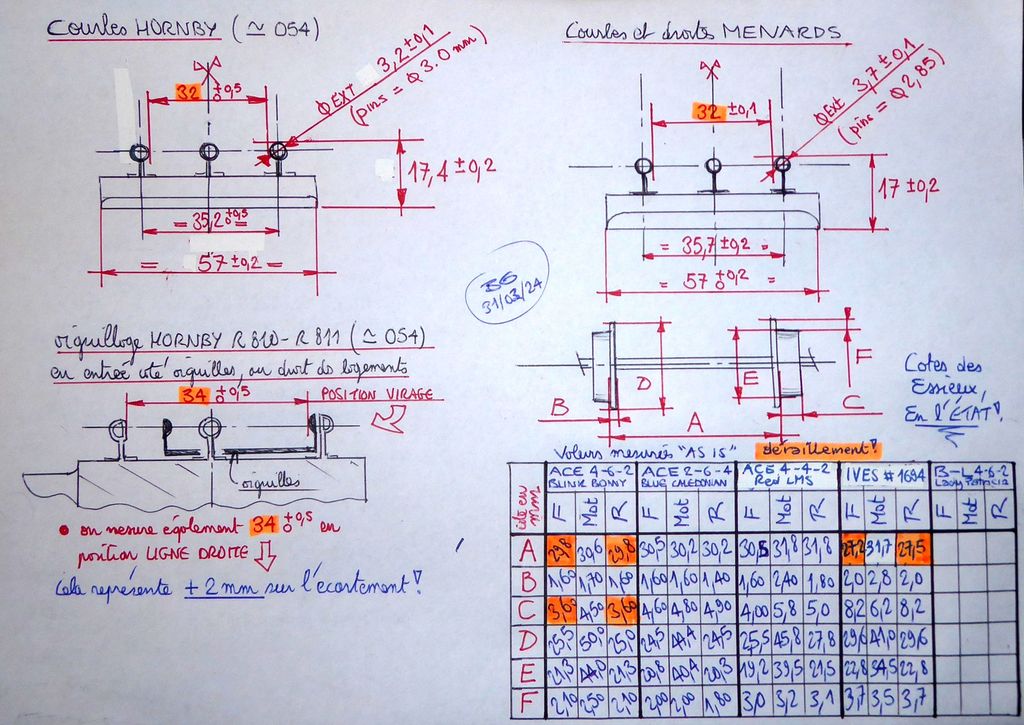 Courbes HORNBY (≃ 054)
32 +0,5 0
Ø EXT 3,2 ±0,1
(pins = Ø 3.0 mm)
17,4 ±0,2
= 35,2 +0,5 0 =
= 57 ±0,2 =
Courbes et droites MENARDS
32 ±0,1
Ø EXT 3,7 ±0,1
(pins = Ø 2,85)
17 ±0,2
= 35,7 ±0,2 =
= 57 +0,2 0 =
BG
31/03/24
aiguillage HORNBY R 810 - R 811 (≃ 054)
en entrée côté aiguilles, au droit des logements
34 +0,5 0
POSITION VIRAGE
aiguilles
• on mesure également 34 +0,5 0 en
position LIGNE DROITE
Cela représente +2 mm sur l'écartement !
B D E F
A C
Cotes des
Essieux,
En l'ÉTAT !
Valeurs mesurées "AS IS" déraillement !
cote en mm
ACE 4-6-2 ACE 2-6-4 ACE 4-4-2 IVES # 1694 B-L 4-6-2
BLUE CALEDONIAN Red LMS
F Mot R F Mot R F Mot R F Mot R F Mot R
A 29,8 30,6 29,8 30,5 30,2 30,2 30,5 31,8 31,8 27,2 31,7 27,5
B 1,60 1,70 1,60 1,60 1,60 1,40 1,60 2,40 1,80 2,0 2,8 2,0
C 3,60 4,50 3,60 4,60 4,80 4,90 4,00 5,8 5,0 8,2 6,2 8,2
D 25,5 50,0 25,0 24,5 44,4 24,5 25,5 45,8 27,8 29,6 41,0 29,6
E 21,3 44,0 21,3 20,8 40,4 20,3 19,2 39,5 21,5 22,8 34,5 22,8
F 2,10 2,50 2,10 2,00 2,00 1,80 3,0 3,2 3,1 3,7 3,5 3,7